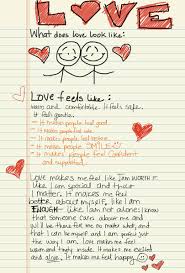 LOVE
What does love look like:
Love feels like:
warm and comfortable. It feels safe.
It feels gentle.
- It makes people feel good
- It makes people feel
- It makes people feel
- It makes people SMILE
- It makes people feel confident
and supported
Love makes me feel like I am WORTH IT
like I am special and that
I matter. It makes me feel
better about myself, like I am
ENOUGH - like I am not alone; know
that someone cares about me and
will be there for me no matter what, and
that I can be myself and I am perfect just
the way I am. Love makes me feel
warm and toasty inside. It makes me excited
and alive. It makes me feel happy